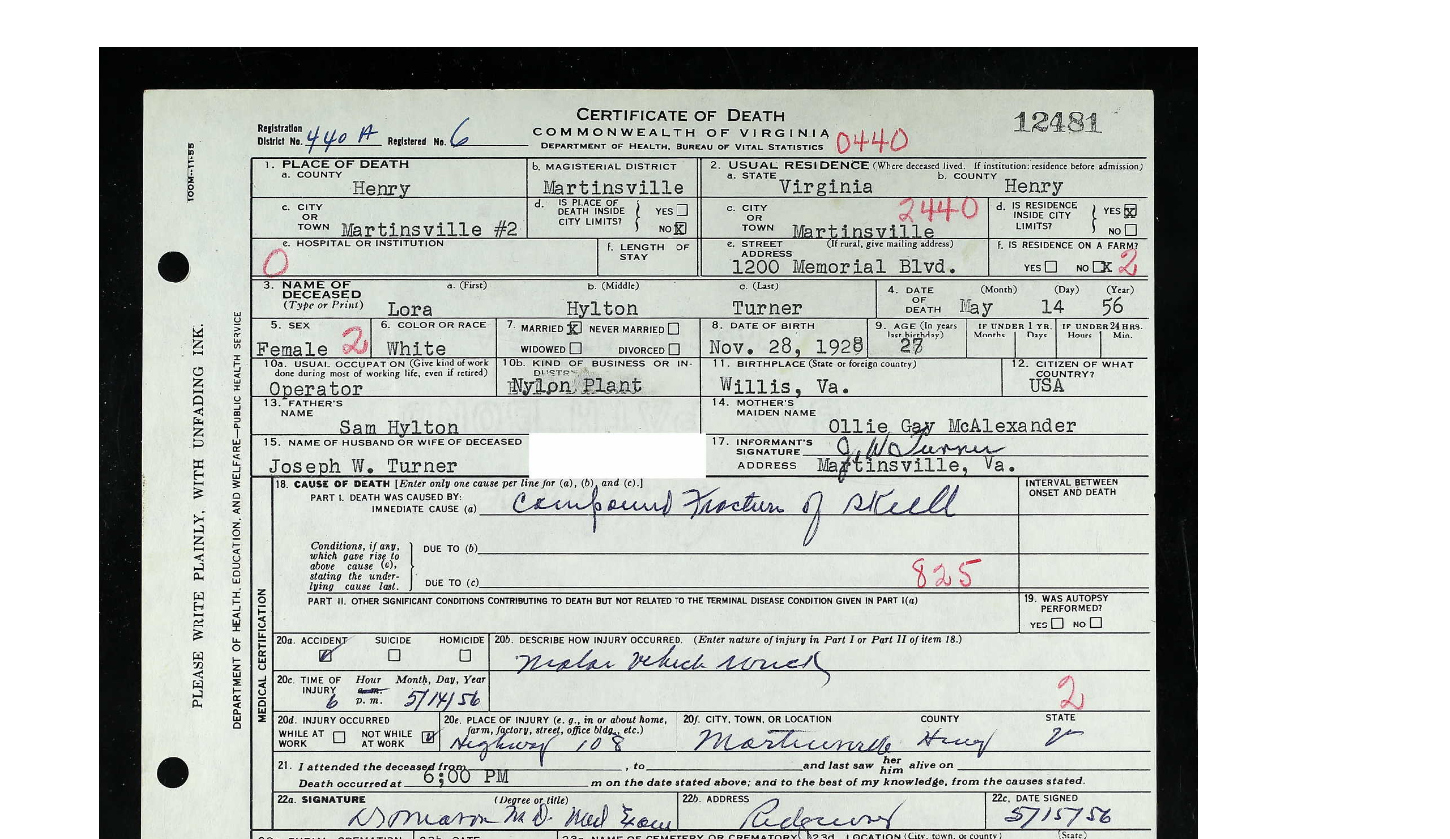 CERTIFICATE OF DEATH
12481
Registration District No. 440 A Registered No. 6
COMMONWEALTH OF VIRGINIA
DEPARTMENT OF HEALTH, BUREAU OF VITAL STATISTICS 0440
100M--11-55
PLEASE WRITE PLAINLY, WITH UNFADING INK.
DEPARTMENT OF HEALTH, EDUCATION, AND WELFARE—PUBLIC HEALTH SERVICE
1. PLACE OF DEATH
a. COUNTY
Henry
b. MAGISTERIAL DISTRICT
Martinsville
2. USUAL RESIDENCE (Where deceased lived. If institution: residence before admission)
a. STATE Virginia b. COUNTY Henry
c. CITY OR TOWN Martinsville #2
d. IS PLACE OF DEATH INSIDE CITY LIMITS? YES NO X
c. CITY OR TOWN Martinsville 2440
d. IS RESIDENCE INSIDE CITY LIMITS? YES X NO
e. HOSPITAL OR INSTITUTION
0
f. LENGTH OF STAY
e. STREET ADDRESS (If rural, give mailing address)
1200 Memorial Blvd.
f. IS RESIDENCE ON A FARM?
YES NO X 2
3. NAME OF DECEASED (Type or Print)
a. (First) b. (Middle) c. (Last)
Lora Hylton Turner
4. DATE OF DEATH (Month) (Day) (Year)
May 14 56
5. SEX
Female 2
6. COLOR OR RACE
White
7. MARRIED X NEVER MARRIED
WIDOWED DIVORCED
8. DATE OF BIRTH
Nov. 28, 1928
9. AGE (In years last birthday)
27
IF UNDER 1 YR. Months Days
IF UNDER 24 HRS. Hours Min.
10a. USUAL OCCUPATION (Give kind of work done during most of working life, even if retired)
Operator
10b. KIND OF BUSINESS OR INDUSTRY
Nylon Plant
11. BIRTHPLACE (State or foreign country)
Willis, Va.
12. CITIZEN OF WHAT COUNTRY?
USA
13. FATHER'S NAME
Sam Hylton
14. MOTHER'S MAIDEN NAME
Ollie Gay McAlexander
15. NAME OF HUSBAND OR WIFE OF DECEASED
Joseph W. Turner
17. INFORMANT'S SIGNATURE J. W. Turner
ADDRESS Martinsville, Va.
MEDICAL CERTIFICATION
18. CAUSE OF DEATH [Enter only one cause per line for (a), (b), and (c).]
INTERVAL BETWEEN ONSET AND DEATH
PART I. DEATH WAS CAUSED BY:
IMMEDIATE CAUSE (a) Compound Fracture of Skull
Conditions, if any, which gave rise to above cause (a), stating the underlying cause last.
DUE TO (b)
DUE TO (c) 825
PART II. OTHER SIGNIFICANT CONDITIONS CONTRIBUTING TO DEATH BUT NOT RELATED TO THE TERMINAL DISEASE CONDITION GIVEN IN PART I(a)
19. WAS AUTOPSY PERFORMED?
YES NO
20a. ACCIDENT SUICIDE HOMICIDE
20b. DESCRIBE HOW INJURY OCCURRED. (Enter nature of injury in Part I or Part II of item 18.)
Motor Vehicle Wreck
20c. TIME OF INJURY Hour Month, Day, Year
6 a.m. p.m. 5/14/56
2
20d. INJURY OCCURRED
WHILE AT WORK NOT WHILE AT WORK
20e. PLACE OF INJURY (e. g., in or about home, farm, factory, street, office bldg., etc.)
Highway 108
20f. CITY, TOWN, OR LOCATION COUNTY STATE
Martinsville Henry Va
21. I attended the deceased from , to and last saw her him alive on
Death occurred at 6:00 PM m on the date stated above; and to the best of my knowledge, from the causes stated.
22a. SIGNATURE (Degree or title)
M.D. Med Exam
22b. ADDRESS
Ridgeway
22c. DATE SIGNED
5/15/56
23c. NAME OF CEMETERY OR CREMATORY 23d. LOCATION (City, town, or county) (State)